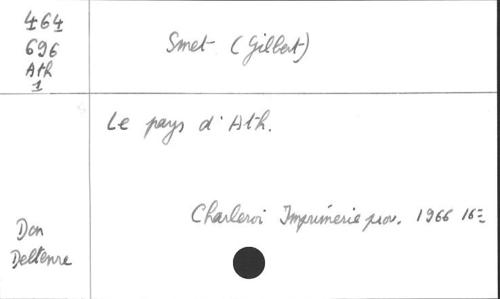 464
696
Ath
1
Smet (Gilbert)
Le pays d'Ath.
Charleroi Imprimerie prov. 1966 16=
Don
Deltenre